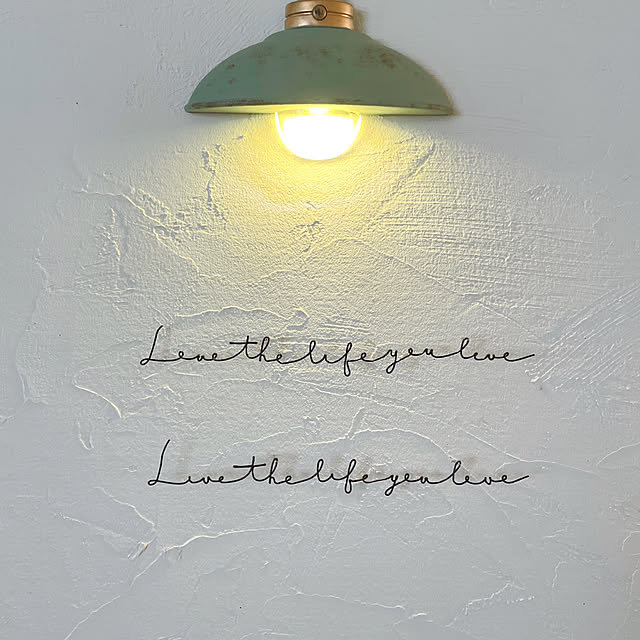 Love the life you live
Live the life you love